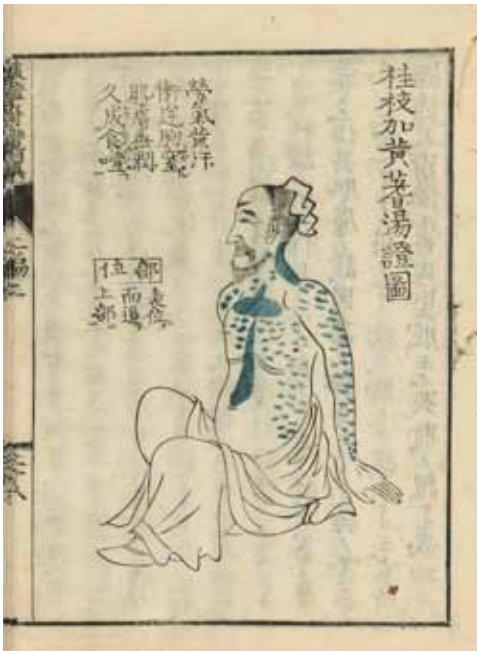 桂枝加黄蓍湯證圖
勞氣黄汗
衝逆胸
肌膚無潤
久成食噎
部位
表位
上部